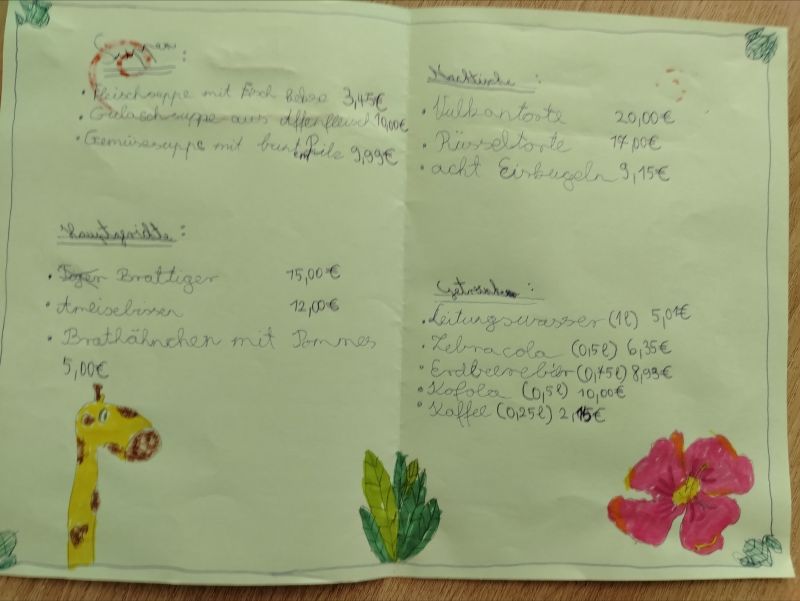 Suppen :
• Fleischsuppe mit 3,45€
• Gulaschsuppe aus Affenfleisch 10,00€
• Gemüsesuppe mit bunt Pilz 9,99€
Hauptgerichte :
• Brattiger 15,00€
• Ameisebisser 12,00€
• Brathähnchen mit Pommes
5,00€
Nachtische :
• Vulkantorte 20,00€
• Rüsseltorte 17,00€
• acht Eiskugeln 9,15€
Getränke :
• Leitungswasser (1l) 5,01€
• Zebracola (0,5l) 6,35€
• Erdbeerebier (0,75l) 8,93€
• Kofola (0,5l) 10,00€
• Kaffee (0,25l) 2,15€